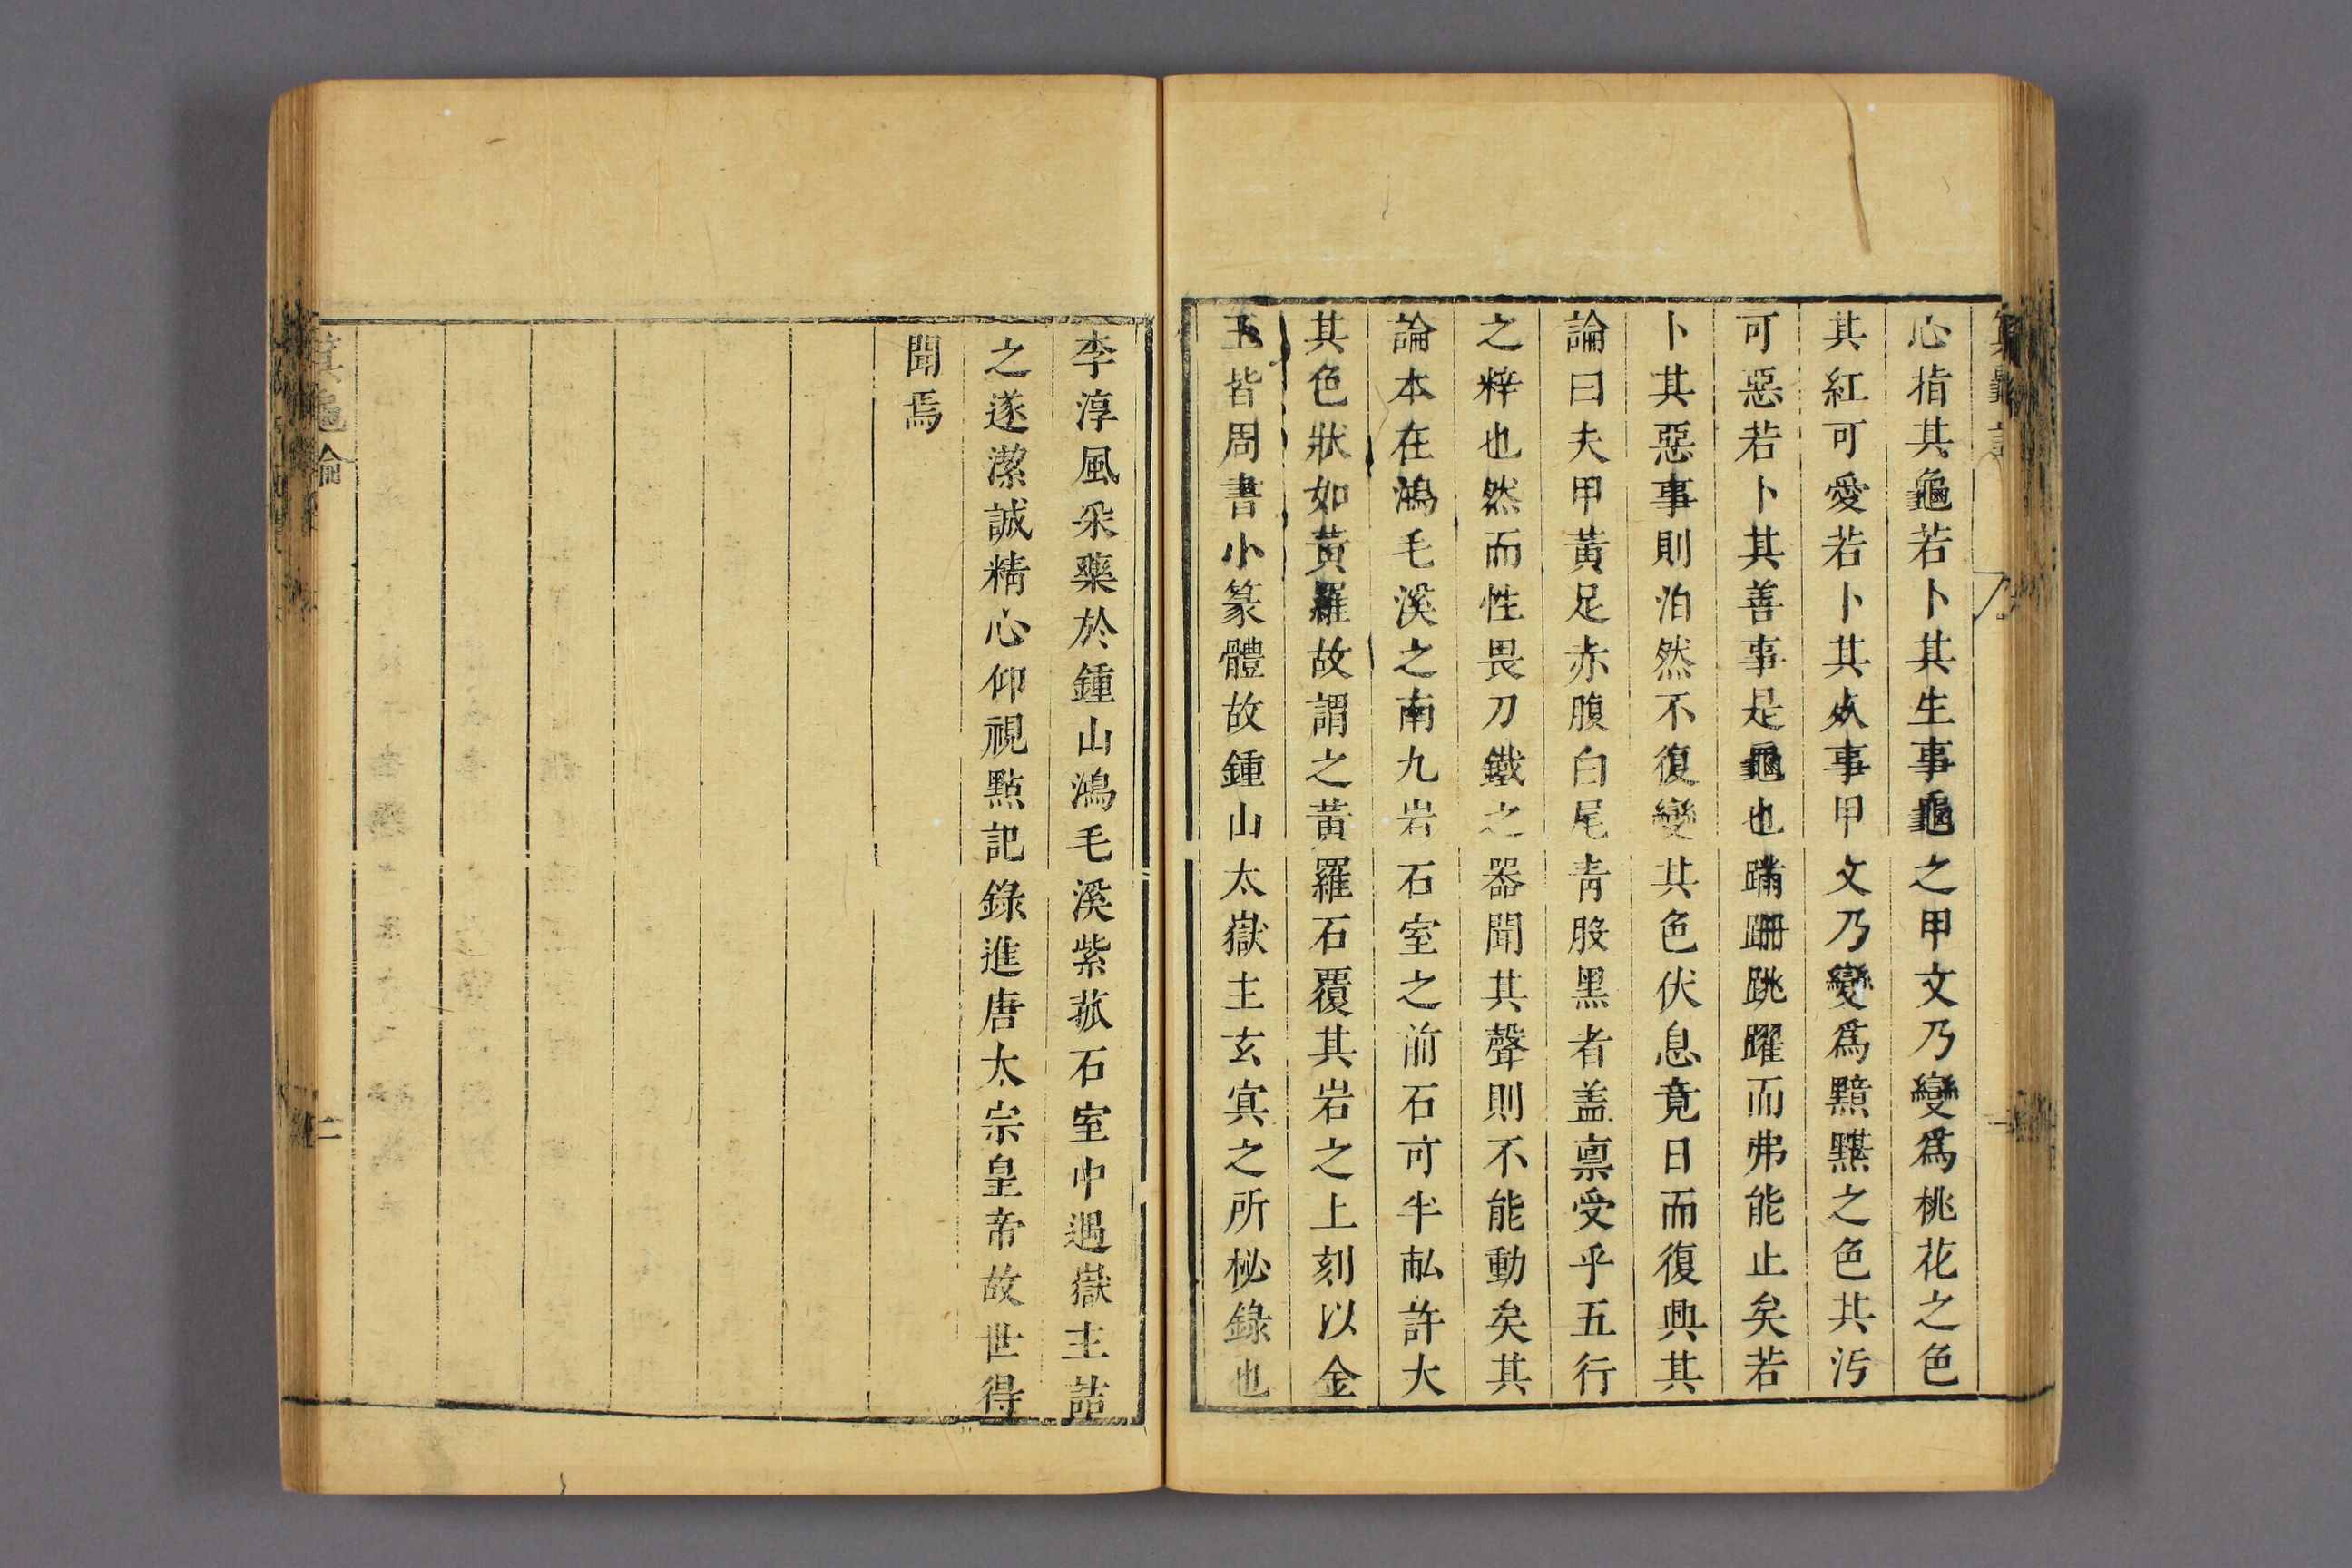 心指其龜若卜其生事龜之甲文乃變爲桃花之色
其紅可愛若卜其事甲文乃變爲黯黮之色其汚
可惡若卜其善事是龜也蹣跚跳躍而弗能止矣若
卜其惡事則泊然不復變其色伏息竟日而復興其
論曰夫甲黃足赤腹白尾青股黑者盖禀受乎五行
之粹也然而性畏刀鐵之器聞其聲則不能動矣其
論本在鴻毛溪之南九岩石室之前石可半畝許大
其色狀如黃羅故謂之黃羅石覆其岩之上刻以金
玉皆周書小篆體故鍾山太嶽主玄㝠之所秘錄也
李淳風采藥於鍾山鴻毛溪紫菰石室中遇嶽主詰
之遂潔誠精心仰視點記錄進唐太宗皇帝故世得
聞焉
龜論
二